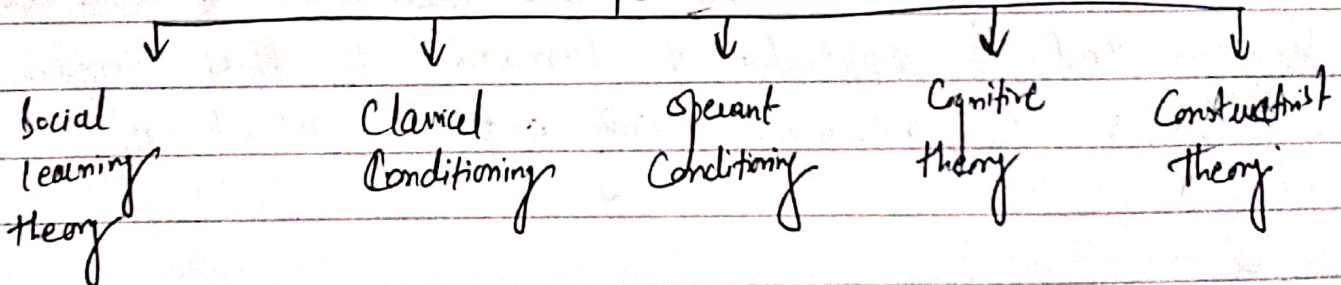 Social
learning
theory
Classical
Conditioning
Operant
Conditioning
Cognitive
theory
Constructivist
theory